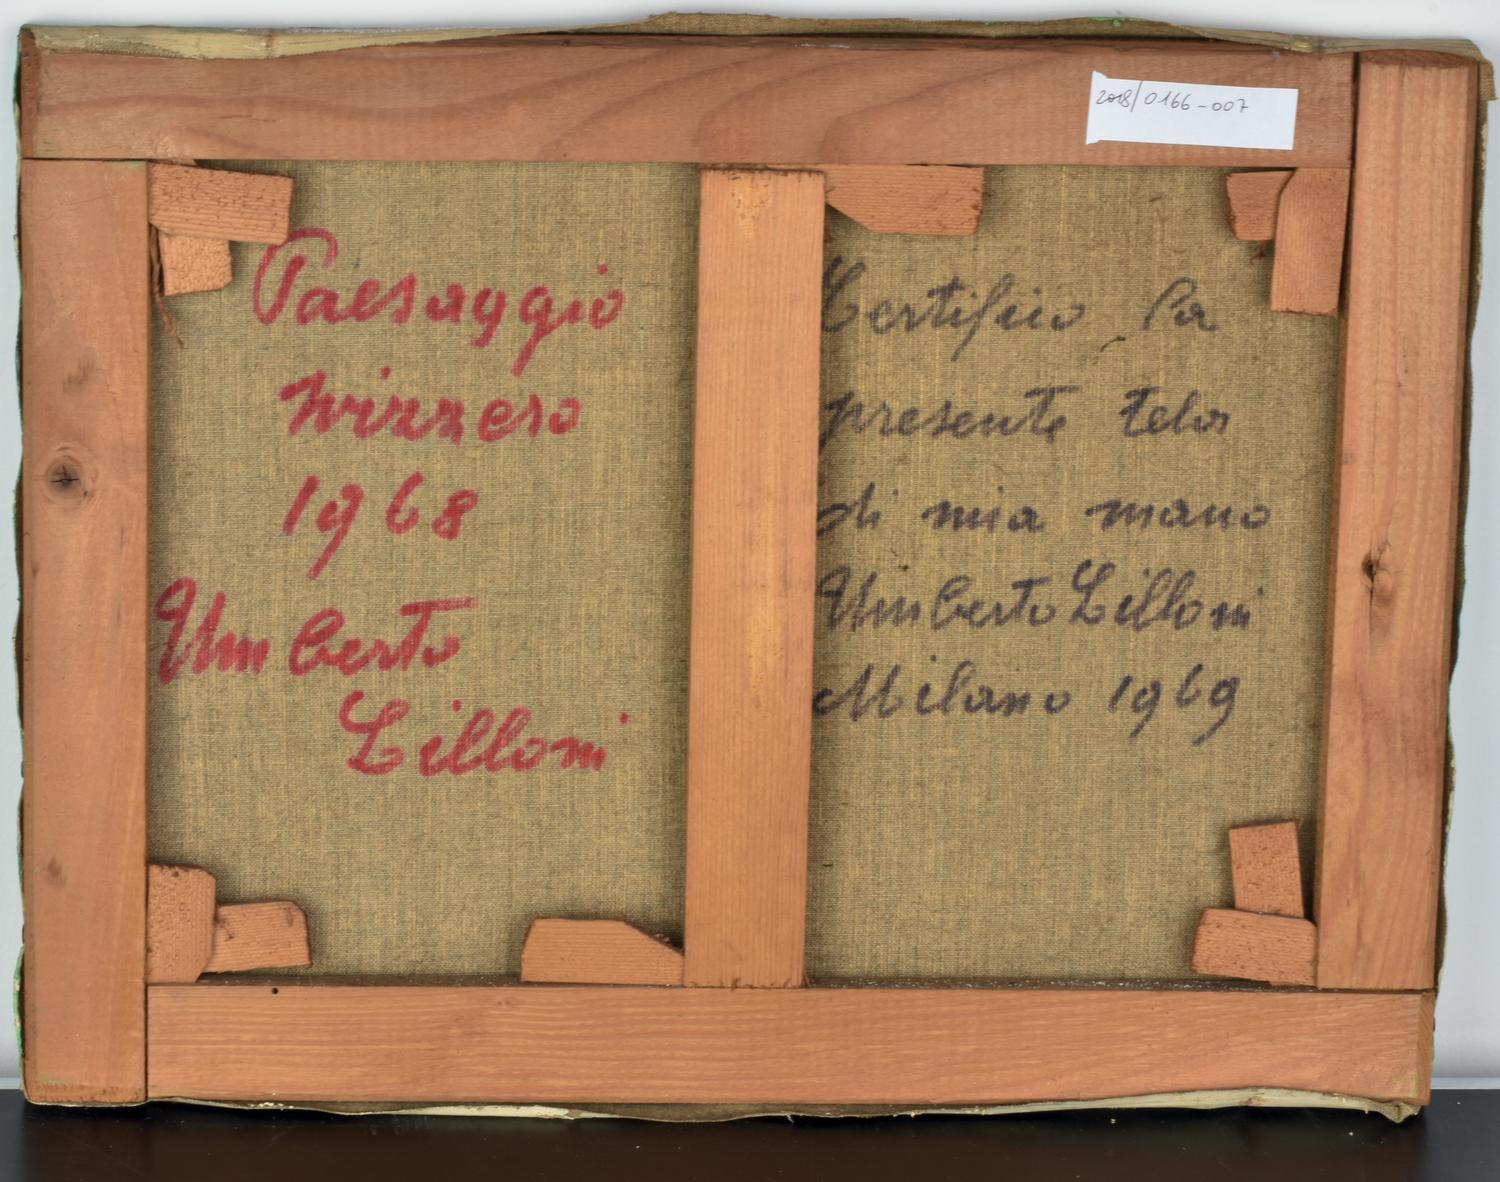 2018/0166-007
Paesaggio
svizzero
1968
Umberto
Lilloni
Certifico la
presente tela
di mia mano
Umberto Lilloni
Milano 1969